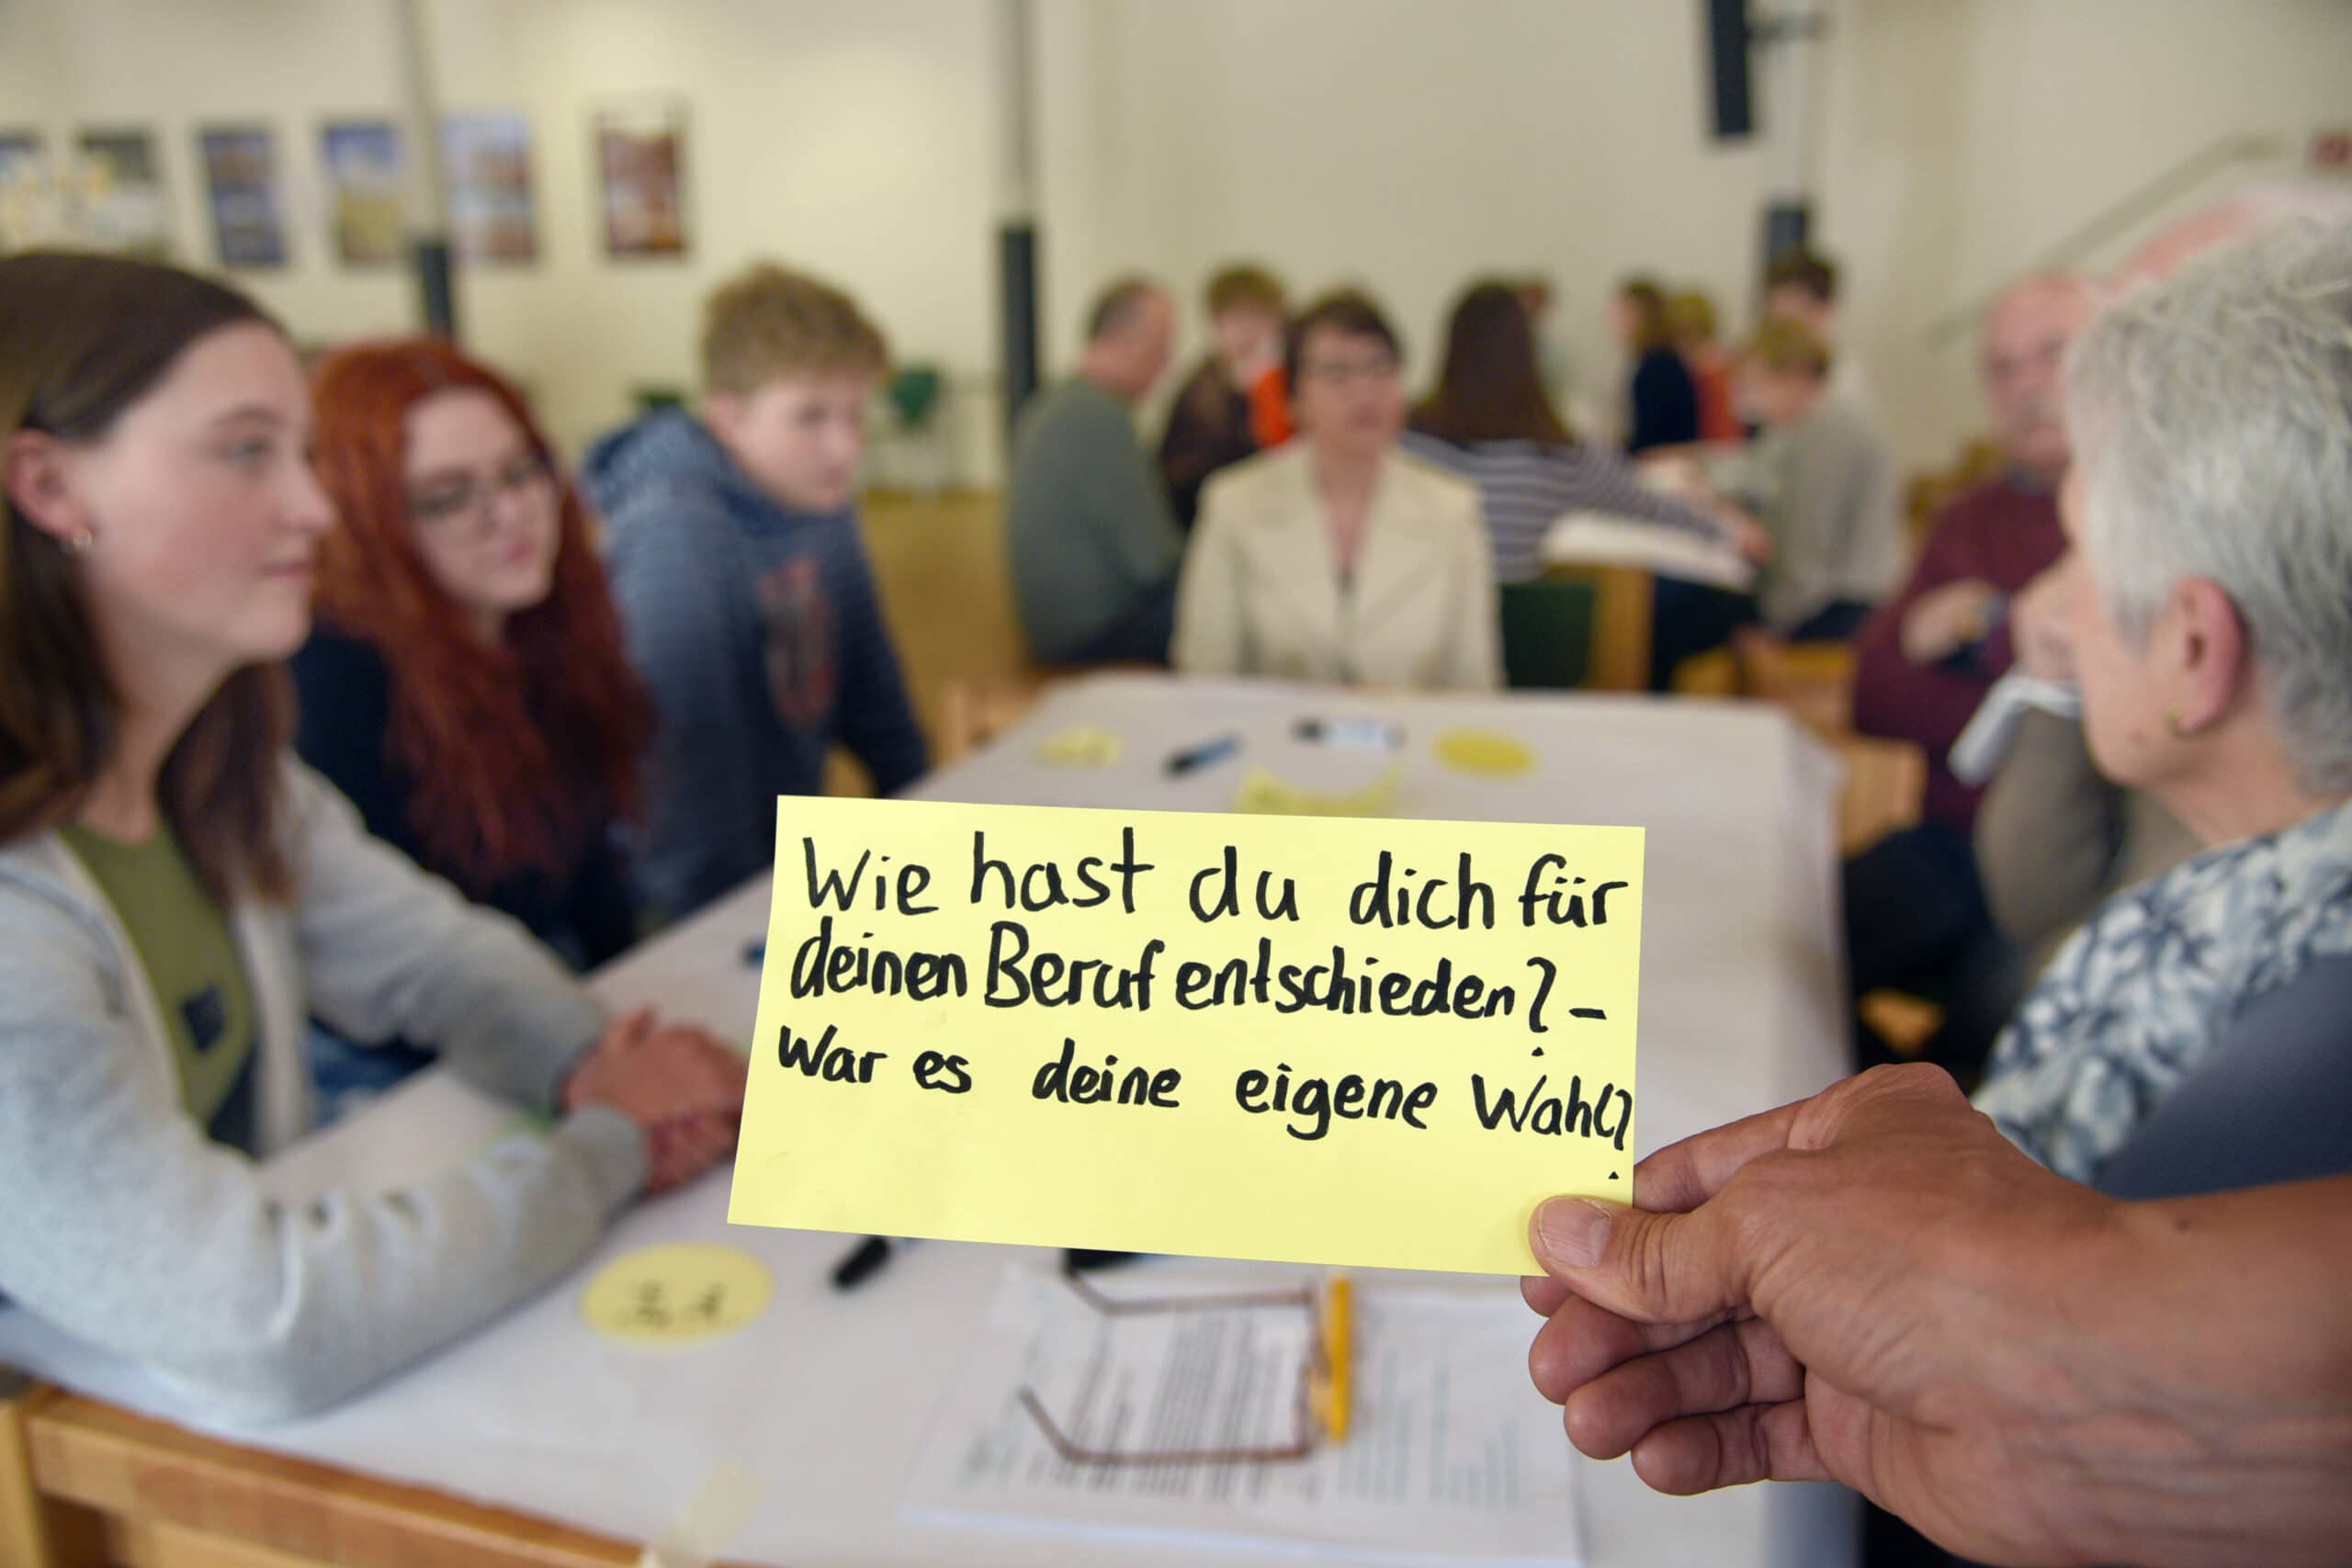 Wie hast du dich für
deinen Beruf entschieden? -
War es deine eigene Wahl?